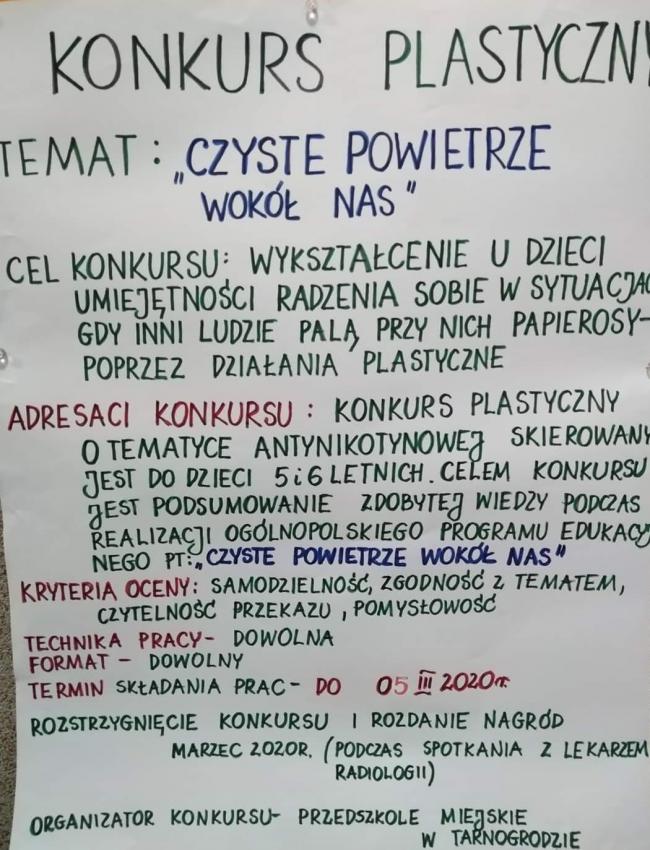 KONKURS PLASTYCZNY
TEMAT: „CZYSTE POWIETRZE
WOKÓŁ NAS"
CEL KONKURSU: WYKSZTAŁCENIE U DZIECI
UMIEJĘTNOŚCI RADZENIA SOBIE W SYTUACJAC
GDY INNI LUDZIE PALĄ PRZY NICH PAPIEROSY-
POPRZEZ DZIAŁANIA PLASTYCZNE
ADRESACI KONKURSU: KONKURS PLASTYCZNY
O TEMATYCE ANTYNIKOTYNOWEJ SKIEROWANY
JEST DO DZIECI 5 i 6 LETNICH. CELEM KONKURSU
JEST PODSUMOWANIE ZDOBYTEJ WIEDZY PODCZAS
REALIZACJI OGÓLNOPOLSKIEGO PROGRAMU EDUKACYJ
NEGO PT: „CZYSTE POWIETRZE WOKÓŁ NAS"
KRYTERIA OCENY: SAMODZIELNOŚĆ, ZGODNOŚĆ Z TEMATEM,
CZYTELNOŚĆ PRZEKAZU, POMYSŁOWOŚĆ
TECHNIKA PRACY- DOWOLNA
FORMAT - DOWOLNY
TERMIN SKŁADANIA PRAC- DO 05 III 2020r.
ROZSTRZYGNIĘCIE KONKURSU I ROZDANIE NAGRÓD
MARZEC 2020R. (PODCZAS SPOTKANIA Z LEKARZEM
RADIOLOGII)
ORGANIZATOR KONKURSU- PRZEDSZKOLE MIEJSKIE
W TARNOGRODZIE